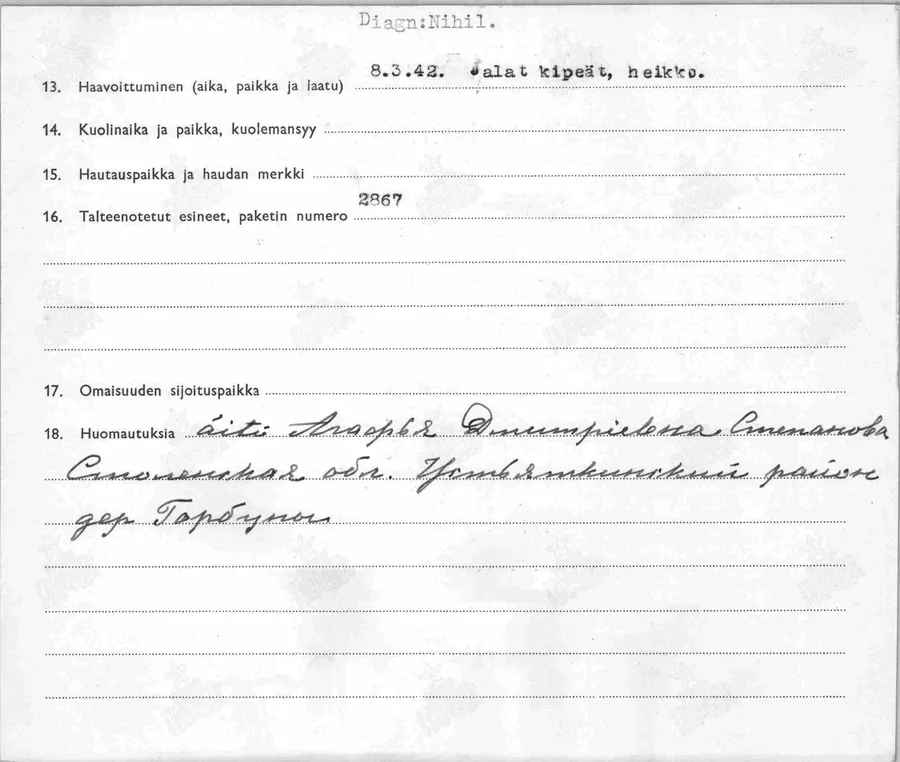 Diagn:Nihil.
8.3.42. Jalat kipeät, heikko.
13. Haavoittuminen (aika, paikka ja laatu)
14. Kuolinaika ja paikka, kuolemansyy
15. Hautauspaikka ja haudan merkki
2867
16. Talteenotetut esineet, paketin numero
17. Omaisuuden sijoituspaikka
18. Huomautuksia äiti Агафья Дмитриевна Степанова
Смоленская обл. район
дер Горбуны